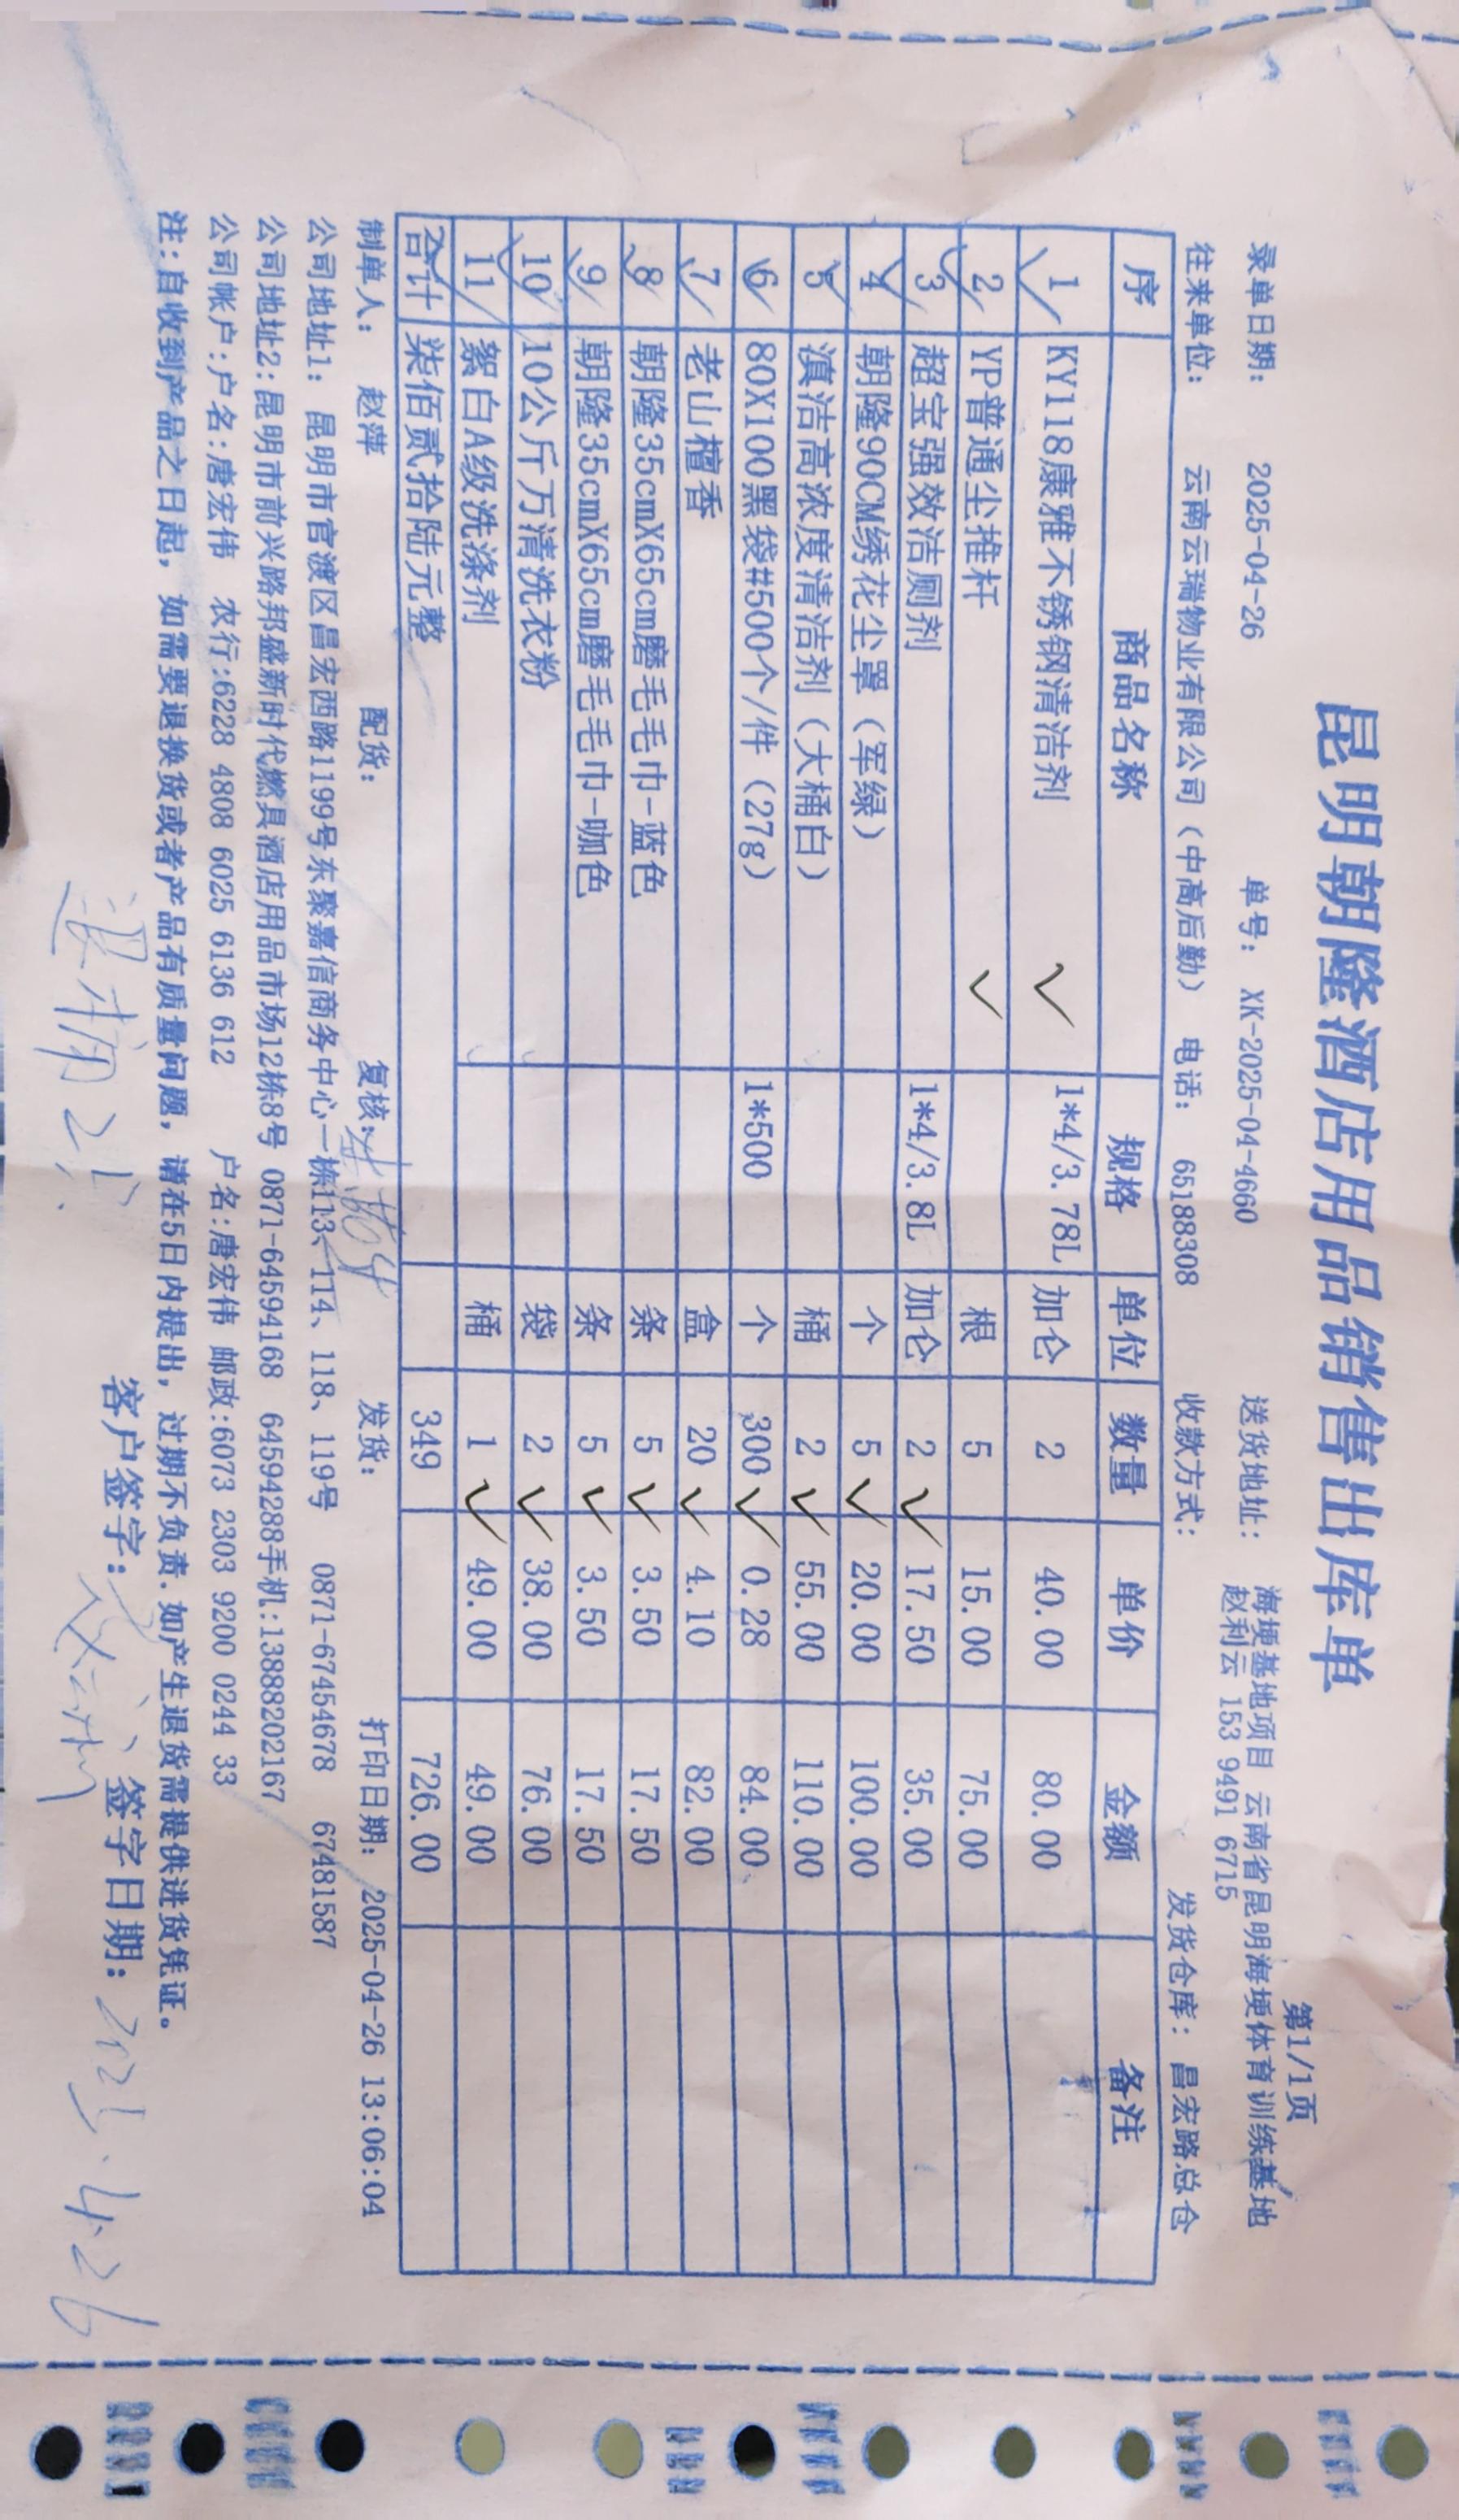 昆明朝隆酒店用品销售出库单
第1/1页
录单日期: 2025-04-26 单号: XK-2025-04-4660 送货地址: 海埂基地项目 云南省昆明海埂体育训练基地 赵利云 153 9491 6715
往来单位: 云南云瑞物业有限公司（中高后勤） 电话: 65188308 收款方式: 发货仓库: 昌宏路总仓
序 商品名称 规格 单位 数量 单价 金额 备注
1 KY118康雅不锈钢清洁剂 1*4/3.78L 加仑 2 40.00 80.00
2 YP普通尘推杆 根 5 15.00 75.00
3 超宝强效洁厕剂 1*4/3.8L 加仑 2 17.50 35.00
4 朝隆90CM绣花尘罩（军绿） 个 5 20.00 100.00
5 滇洁高浓度清洁剂（大桶白） 桶 2 55.00 110.00
6 80X100黑袋#500个/件（27g） 1*500 个 300 0.28 84.00
7 老山檀香 盒 20 4.10 82.00
8 朝隆35cmX65cm磨毛毛巾-蓝色 条 5 3.50 17.50
9 朝隆35cmX65cm磨毛毛巾-咖色 条 5 3.50 17.50
10 10公斤万清洗衣粉 袋 2 38.00 76.00
11 絮白A级洗涤剂 桶 1 49.00 49.00
合计 柒佰贰拾陆元整 349 726.00
制单人: 赵萍 配货: 复核: 发货: 打印日期: 2025-04-26 13:06:04
公司地址1: 昆明市官渡区昌宏西路1199号东聚嘉信商务中心一栋113、114、118、119号 0871-67454678 67481587
公司地址2:昆明市前兴路邦盛新时代燃具酒店用品市场12栋8号 0871-64594168 64594288手机:13888202167
公司帐户:户名:唐宏伟 农行:6228 4808 6025 6136 612 户名:唐宏伟 邮政:6073 2303 9200 0244 33
注:自收到产品之日起，如需要退换货或者产品有质量问题，请在5日内提出，过期不负责.如产生退货需提供进货凭证。
客户签字: 签字日期: 2025.4.26